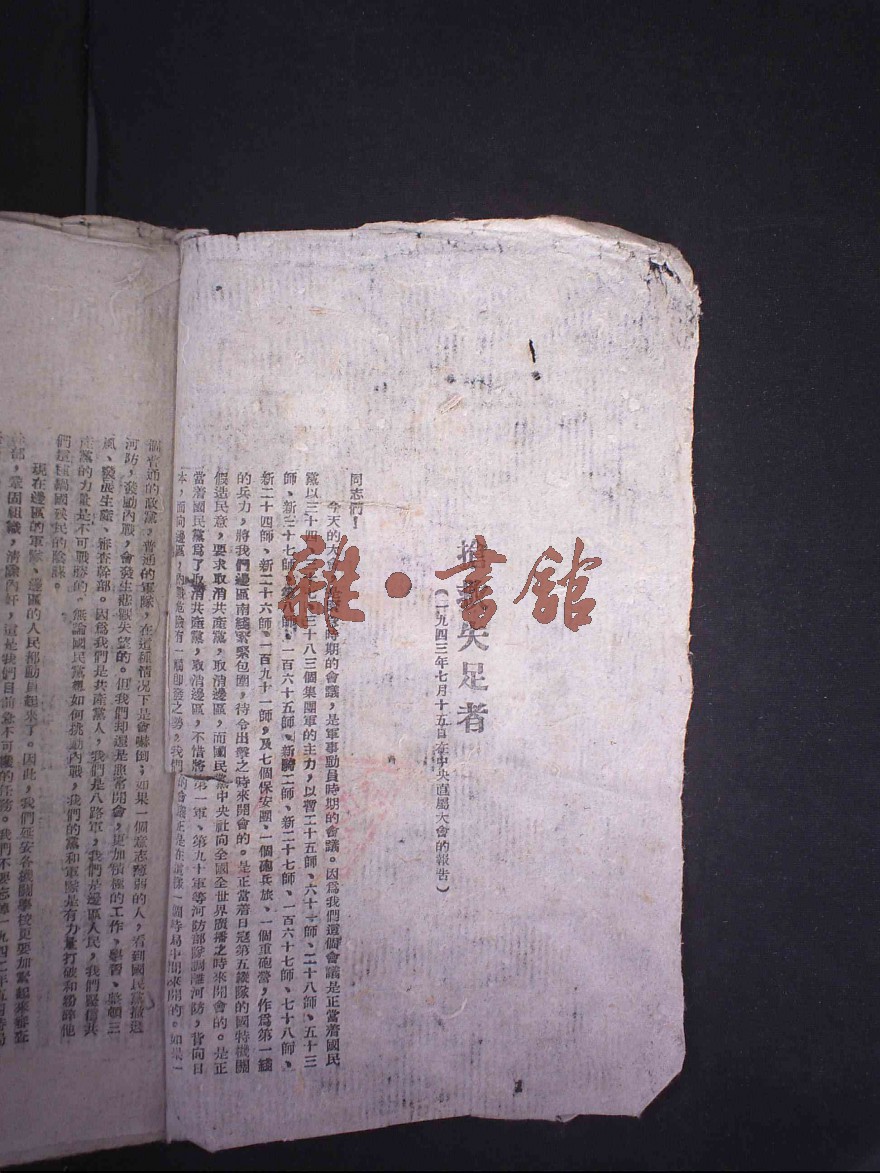 搶救失足者
(一九四三年七月十五日在中央直屬大會的報告)
同志們!
今天的大會 時期的會議,是軍事動員時期的會議。因爲我們這個會議是正當着國民
黨以三十四 三十八三個集團軍的主力,以暫二十五師、六十一師、二十八師、五十三
師、新三十七師、第八師、一百六十五師、新騎二師、新二十七師、一百六十七師、七十八師、
新二十四師、新二十六師、一百九十一師,及七個保安團、一個砲兵旅、一個重砲營,作爲第一綫
的兵力,將我們邊區南綫緊緊包圍,待令出擊之時來開會的。是正當着日寇第五縱隊的國特機關
假造民意,要求取消共產黨,取消邊區,而國民黨中央社向全國全世界廣播之時來開會的。是正
當着國民黨爲了取消共產黨,取消邊區,不惜將第一軍、第九十軍等河防部隊調離河防,背向日
本,面向邊區,內戰危險有一觸即發之勢,我們的會議正是在這樣一個時局中間來開的。如果一
個普通的政黨,普通的軍隊,在這種情况下是會嚇倒;如果一個意志薄弱的人,看到國民黨撤退
河防,發動內戰,會發生悲觀失望的。但我們却還是照常開會,更加積極的工作、學習、整頓三
風、發展生產、審查幹部。因爲我們是共產黨人,我們是八路軍,我們是邊區人民,我們堅信共
產黨的力量是不可戰勝的。無論國民黨想如何挑動內戰,我們的黨和軍隊是有力量打破和粉碎他
們這種禍國殃民的陰謀。
現在邊區的軍隊、邊區的人民都動員起來了。因此,我們延安各機關學校更要加緊起來審查
幹部,鞏固組織,清除內奸,這是我們目前急不可緩的任務。我們不要忘掉一九四二年五月時局
雜·書館